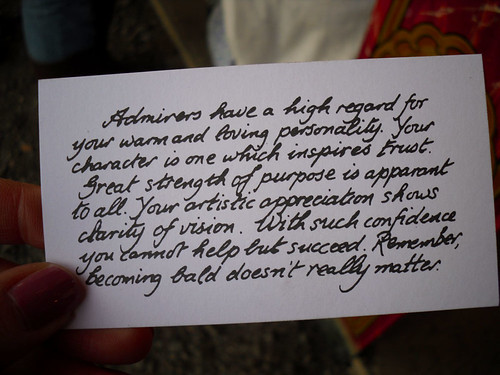 Admirers have a high regard for
your warm and loving personality. Your
character is one which inspires trust.
Great strength of purpose is apparant
to all. Your artistic appreciation shows
clarity of vision. With such confidence
you cannot help but succeed. Remember,
becoming bald doesn't really matter.